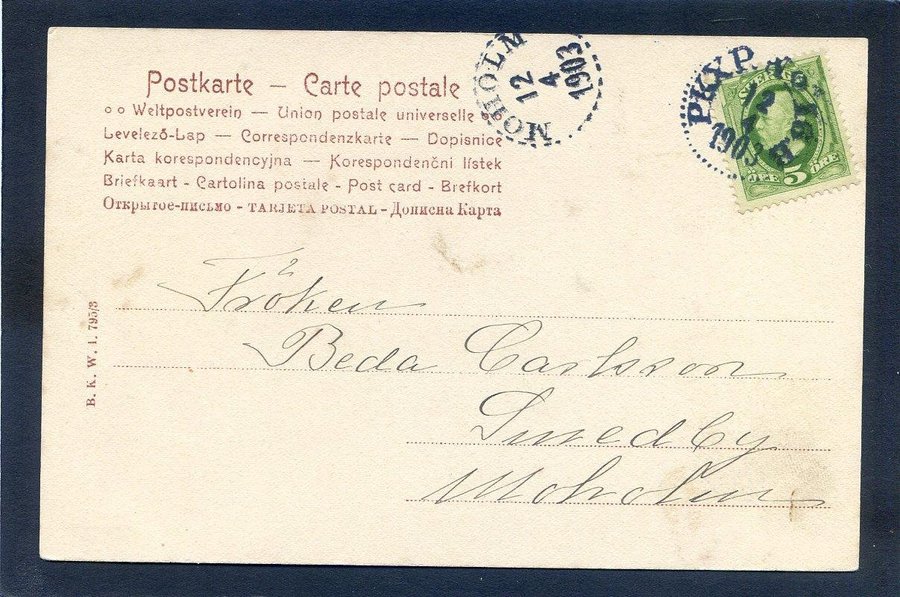 Postkarte — Carte postale
Weltpostverein — Union postale universelle
Levelező-Lap — Correspondenzkarte — Dopisnice
Karta korespondencyjna — Korespondenční lístek
Briefkaart - Cartolina postale - Post card - Brefkort
Открытое-письмо - TARJETA POSTAL - Дописна Карта
MOHOLM
12
4
1903
PKXP. No
2
1903
SVERIGE
ÖRE 5 ÖRE
B. K. W. I. 795/3
Fröken
Beda Carlsson
Smedby
Moholm